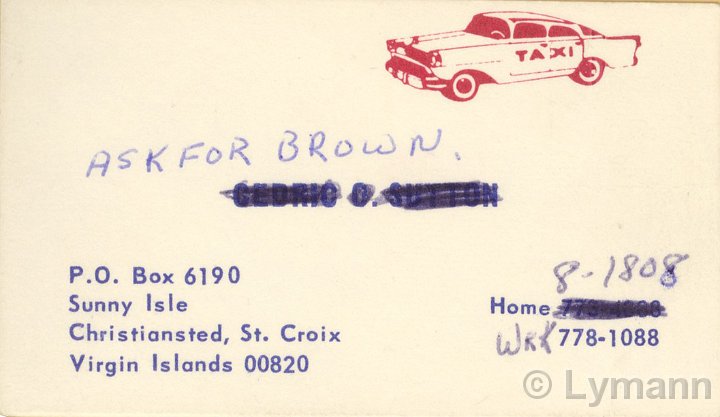 TAXI
ASK FOR BROWN.
CEDRIC O. SUTTON
P.O. Box 6190
Sunny Isle
Christiansted, St. Croix
Virgin Islands 00820
8-1808
Home
Wrk 778-1088
© Lymann